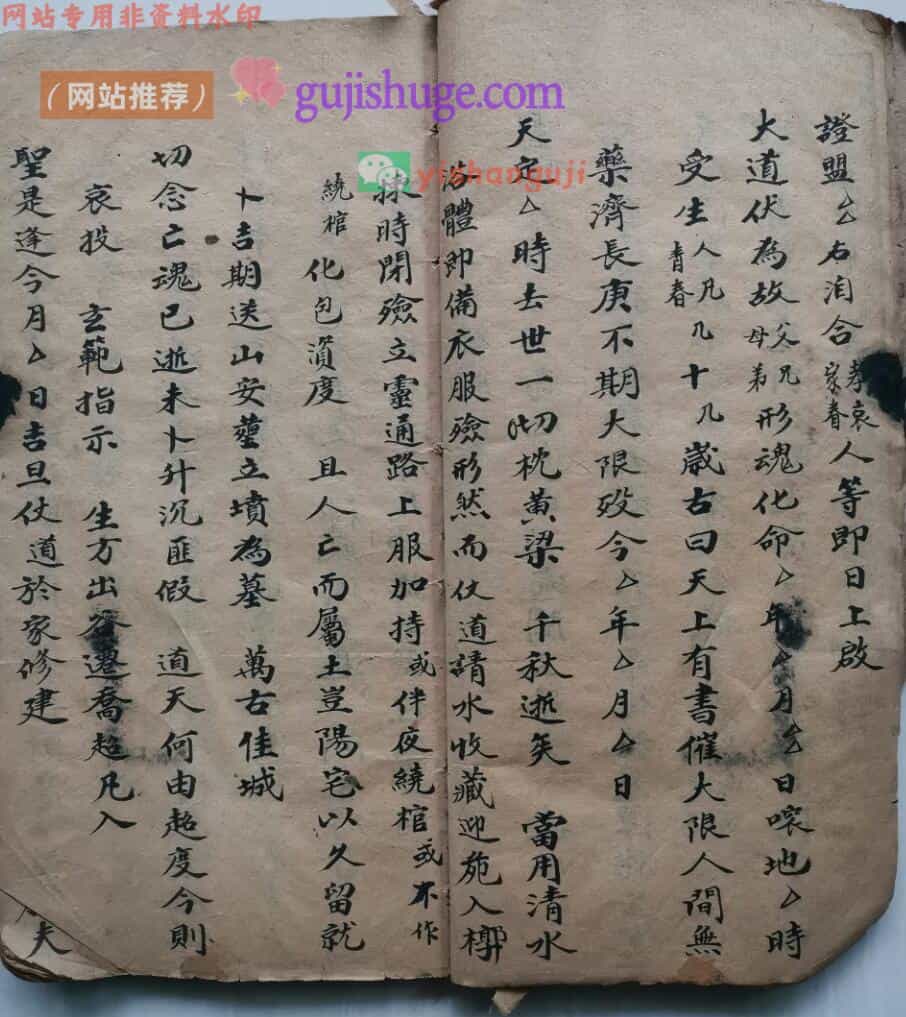 网站专用非资料水印
（网站推荐）
gujishuge.com
yishanguji
證盟厶厶右洎合孝哀家眷人等即日上啟
大道伏為故父母兄弟形魂化命厶年厶月厶日喂地厶時
受生人凡青春几十几歲古曰天上有書催大限人間無
藥濟長庚不期大限歿今厶年厶月厶日
天定厶時去世一切枕黄梁千秋逝矣當用清水
浴體即備衣服殮形然而仗道請水收藏迎苑入槨
揀時閉殮立靈通路上服加持或伴夜繞棺或不作
繞棺化包濱度且人亡而屬土豈陽宅以久留就
卜吉期送山安薶立墳為墓萬古佳城
切念亡魂已逝未卜升沉匪假道天何由超度今則
哀投玄範指示生方出谷遷喬超凡入
聖是逢今月厶日吉旦仗道於家修建
夫